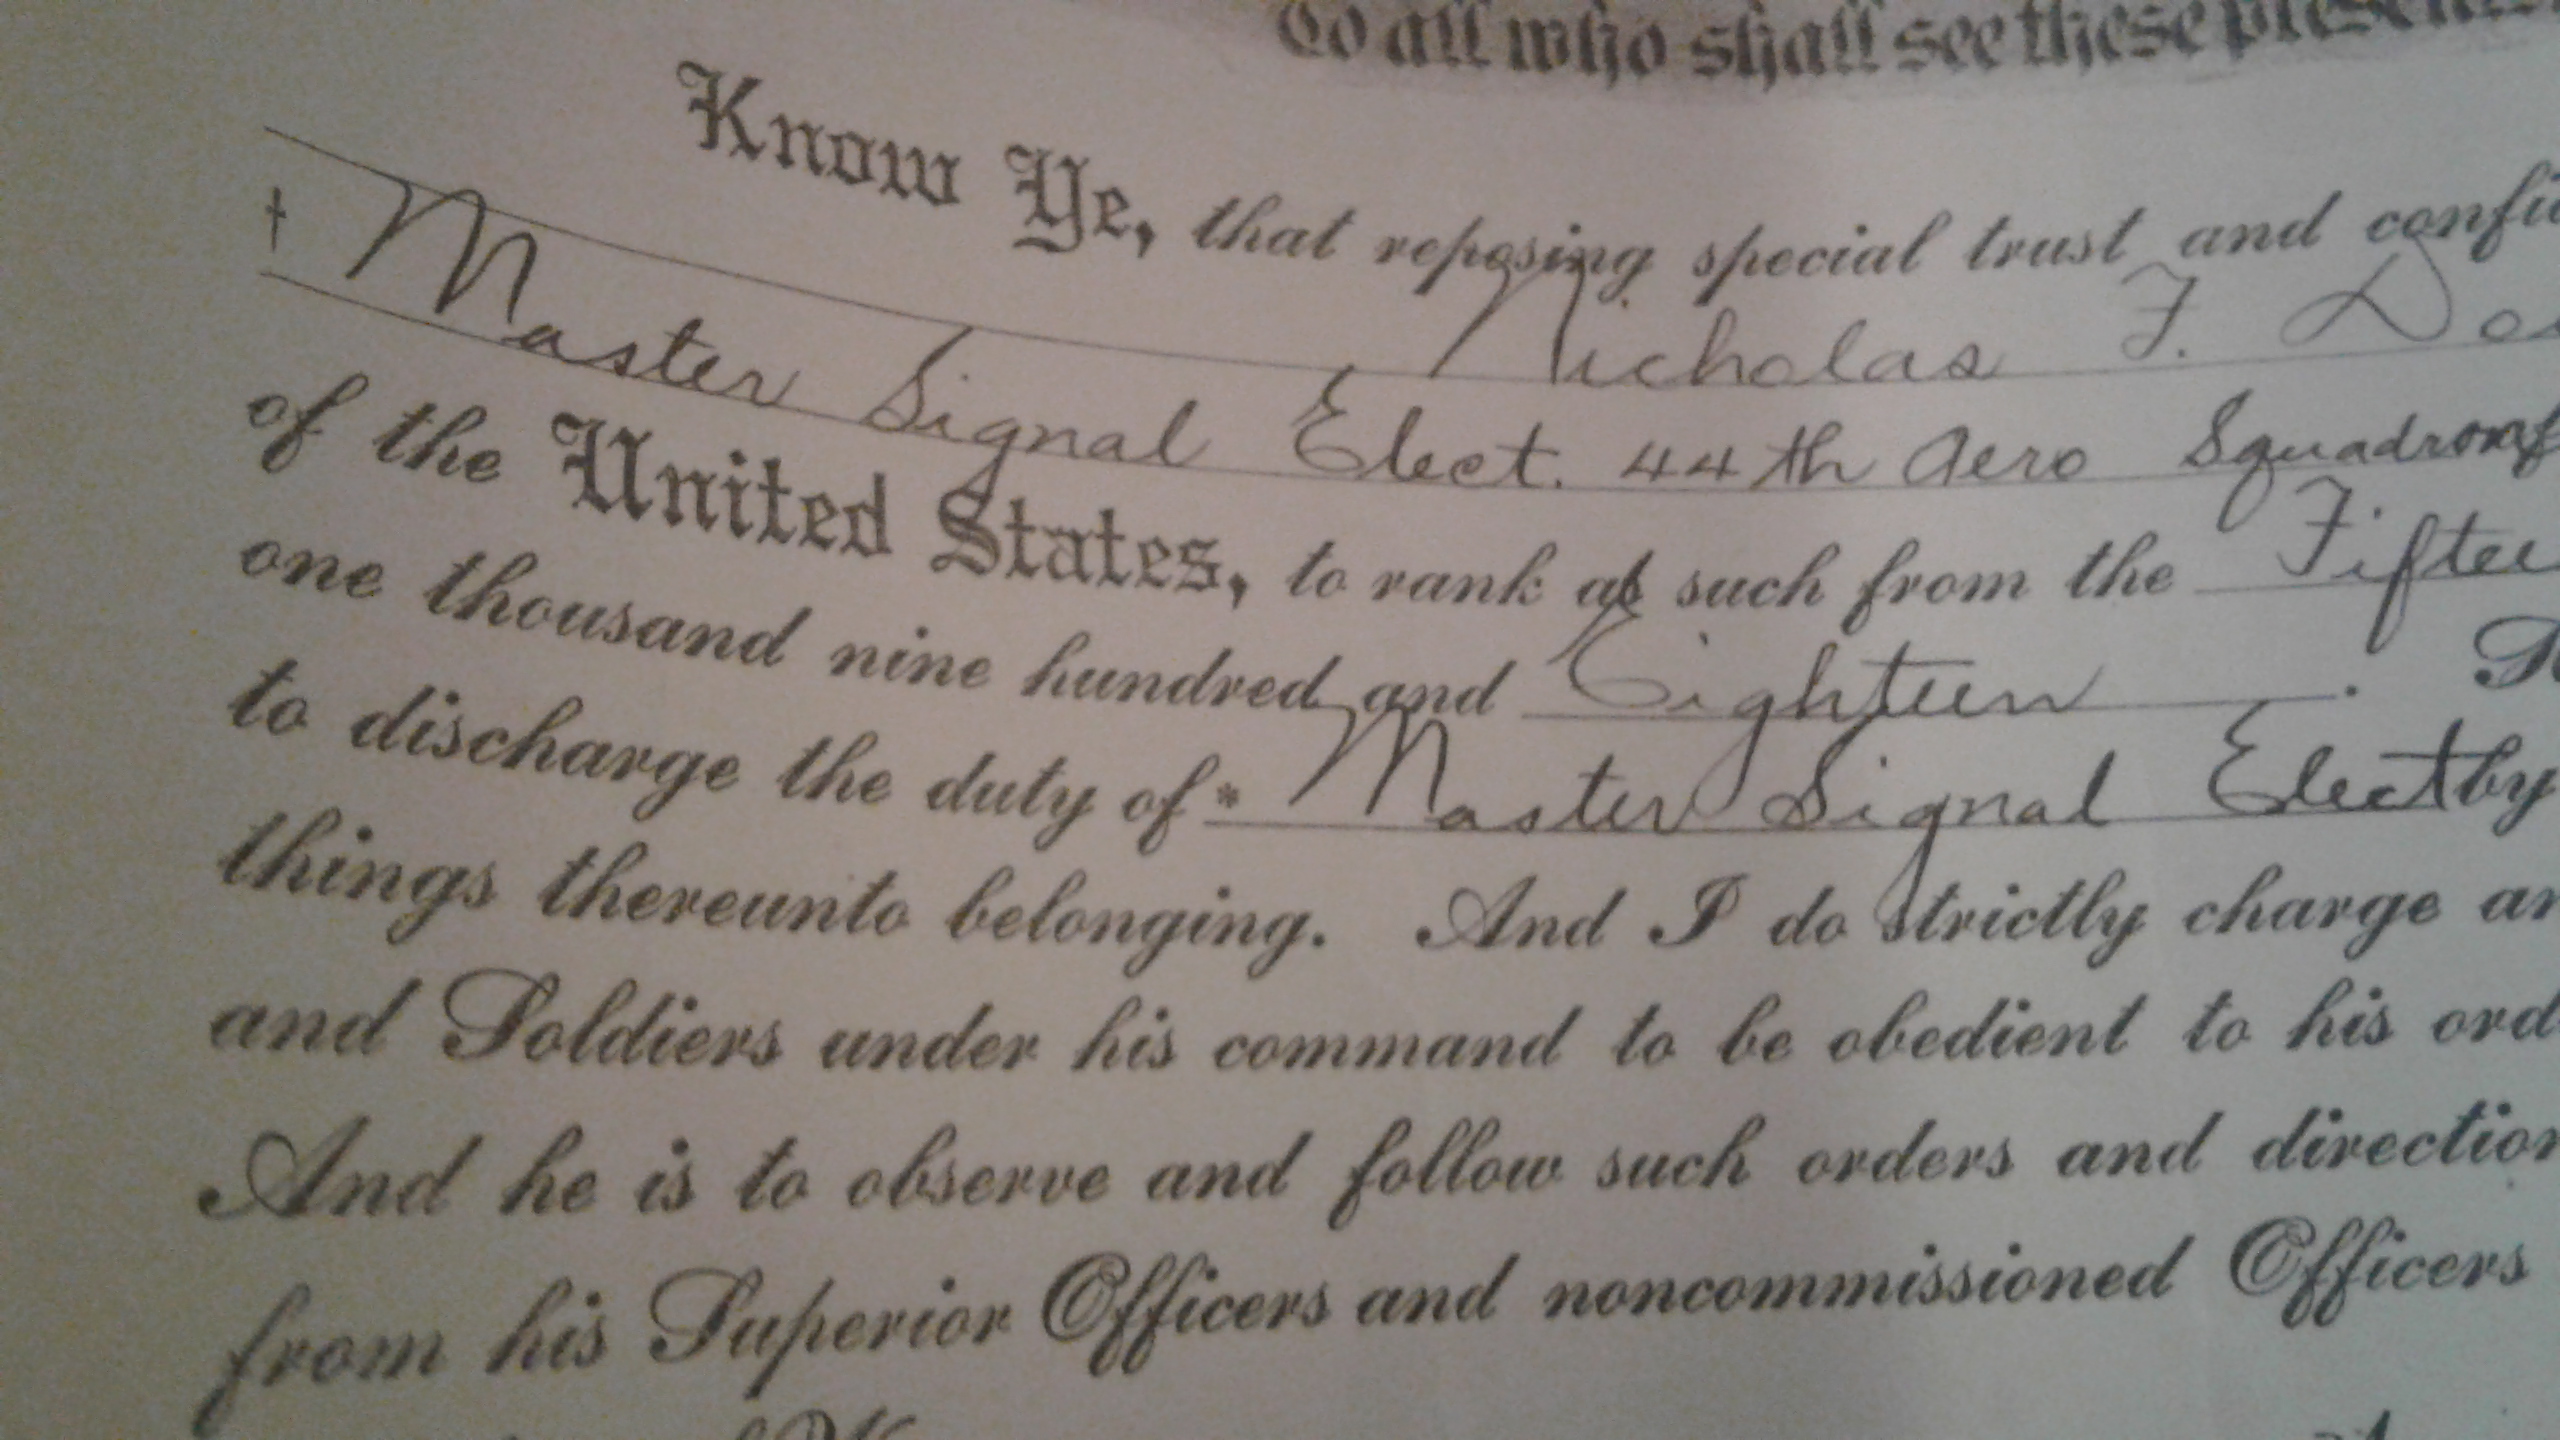 To all who shall see these
Know Ye, that reposing special trust and
Nicholas F.
† Master Signal Elect. 44th Aero Squadron
of the United States, to rank as such from the
one thousand nine hundred and Eighteen.
to discharge the duty of * Master Signal Elect by
things thereunto belonging. And I do strictly charge
and Soldiers under his command to be obedient to his
And he is to observe and follow such orders and
from his Superior Officers and noncommissioned Officers